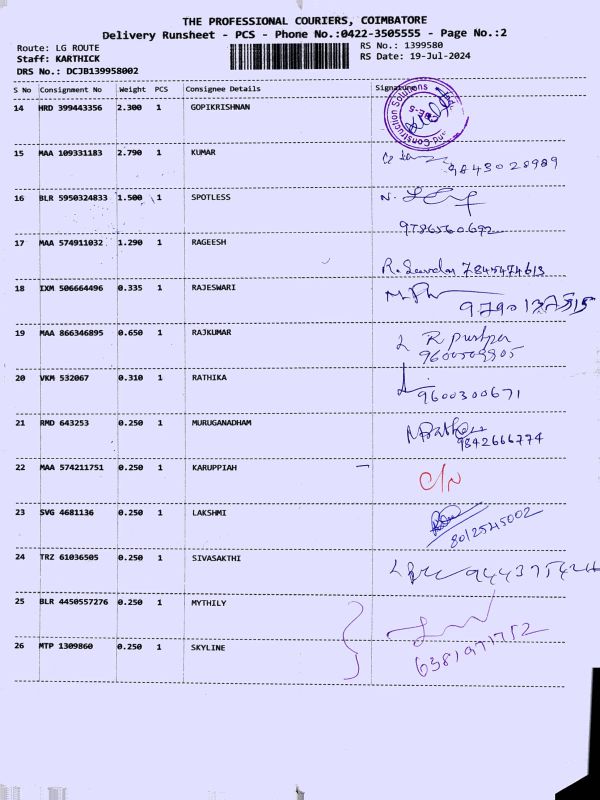 THE PROFESSIONAL COURIERS, COIMBATORE
Delivery Runsheet - PCS - Phone No.:0422-3505555 - Page No.:2
Route: LG ROUTE
RS No.: 1399580
Staff: KARTHICK
RS Date: 19-Jul-2024
DRS No.: DCJB139958002
S No Consignment No Weight PCS Consignee Details Signature
14 HRD 399443356 2.300 1 GOPIKRISHNAN
Construction Solutions
15 MAA 109331183 2.790 1 KUMAR
9843028989
16 BLR 5950324833 1.500 1 SPOTLESS
9786560692
17 MAA 574911032 1.290 1 RAGEESH
7845474613
18 IXM 506664496 0.335 1 RAJESWARI
19 MAA 866346895 0.650 1 RAJKUMAR
R pushpa
20 VKM 532067 0.310 1 RATHIKA
9600300671
21 RMD 643253 0.250 1 MURUGANADHAM
9842666774
22 MAA 574211751 0.250 1 KARUPPIAH
C/N
23 SVG 4681136 0.250 1 LAKSHMI
8012545002
24 TRZ 61036505 0.250 1 SIVASAKTHI
25 BLR 4450557276 0.250 1 MYTHILY
6381971752
26 MTP 1309860 0.250 1 SKYLINE